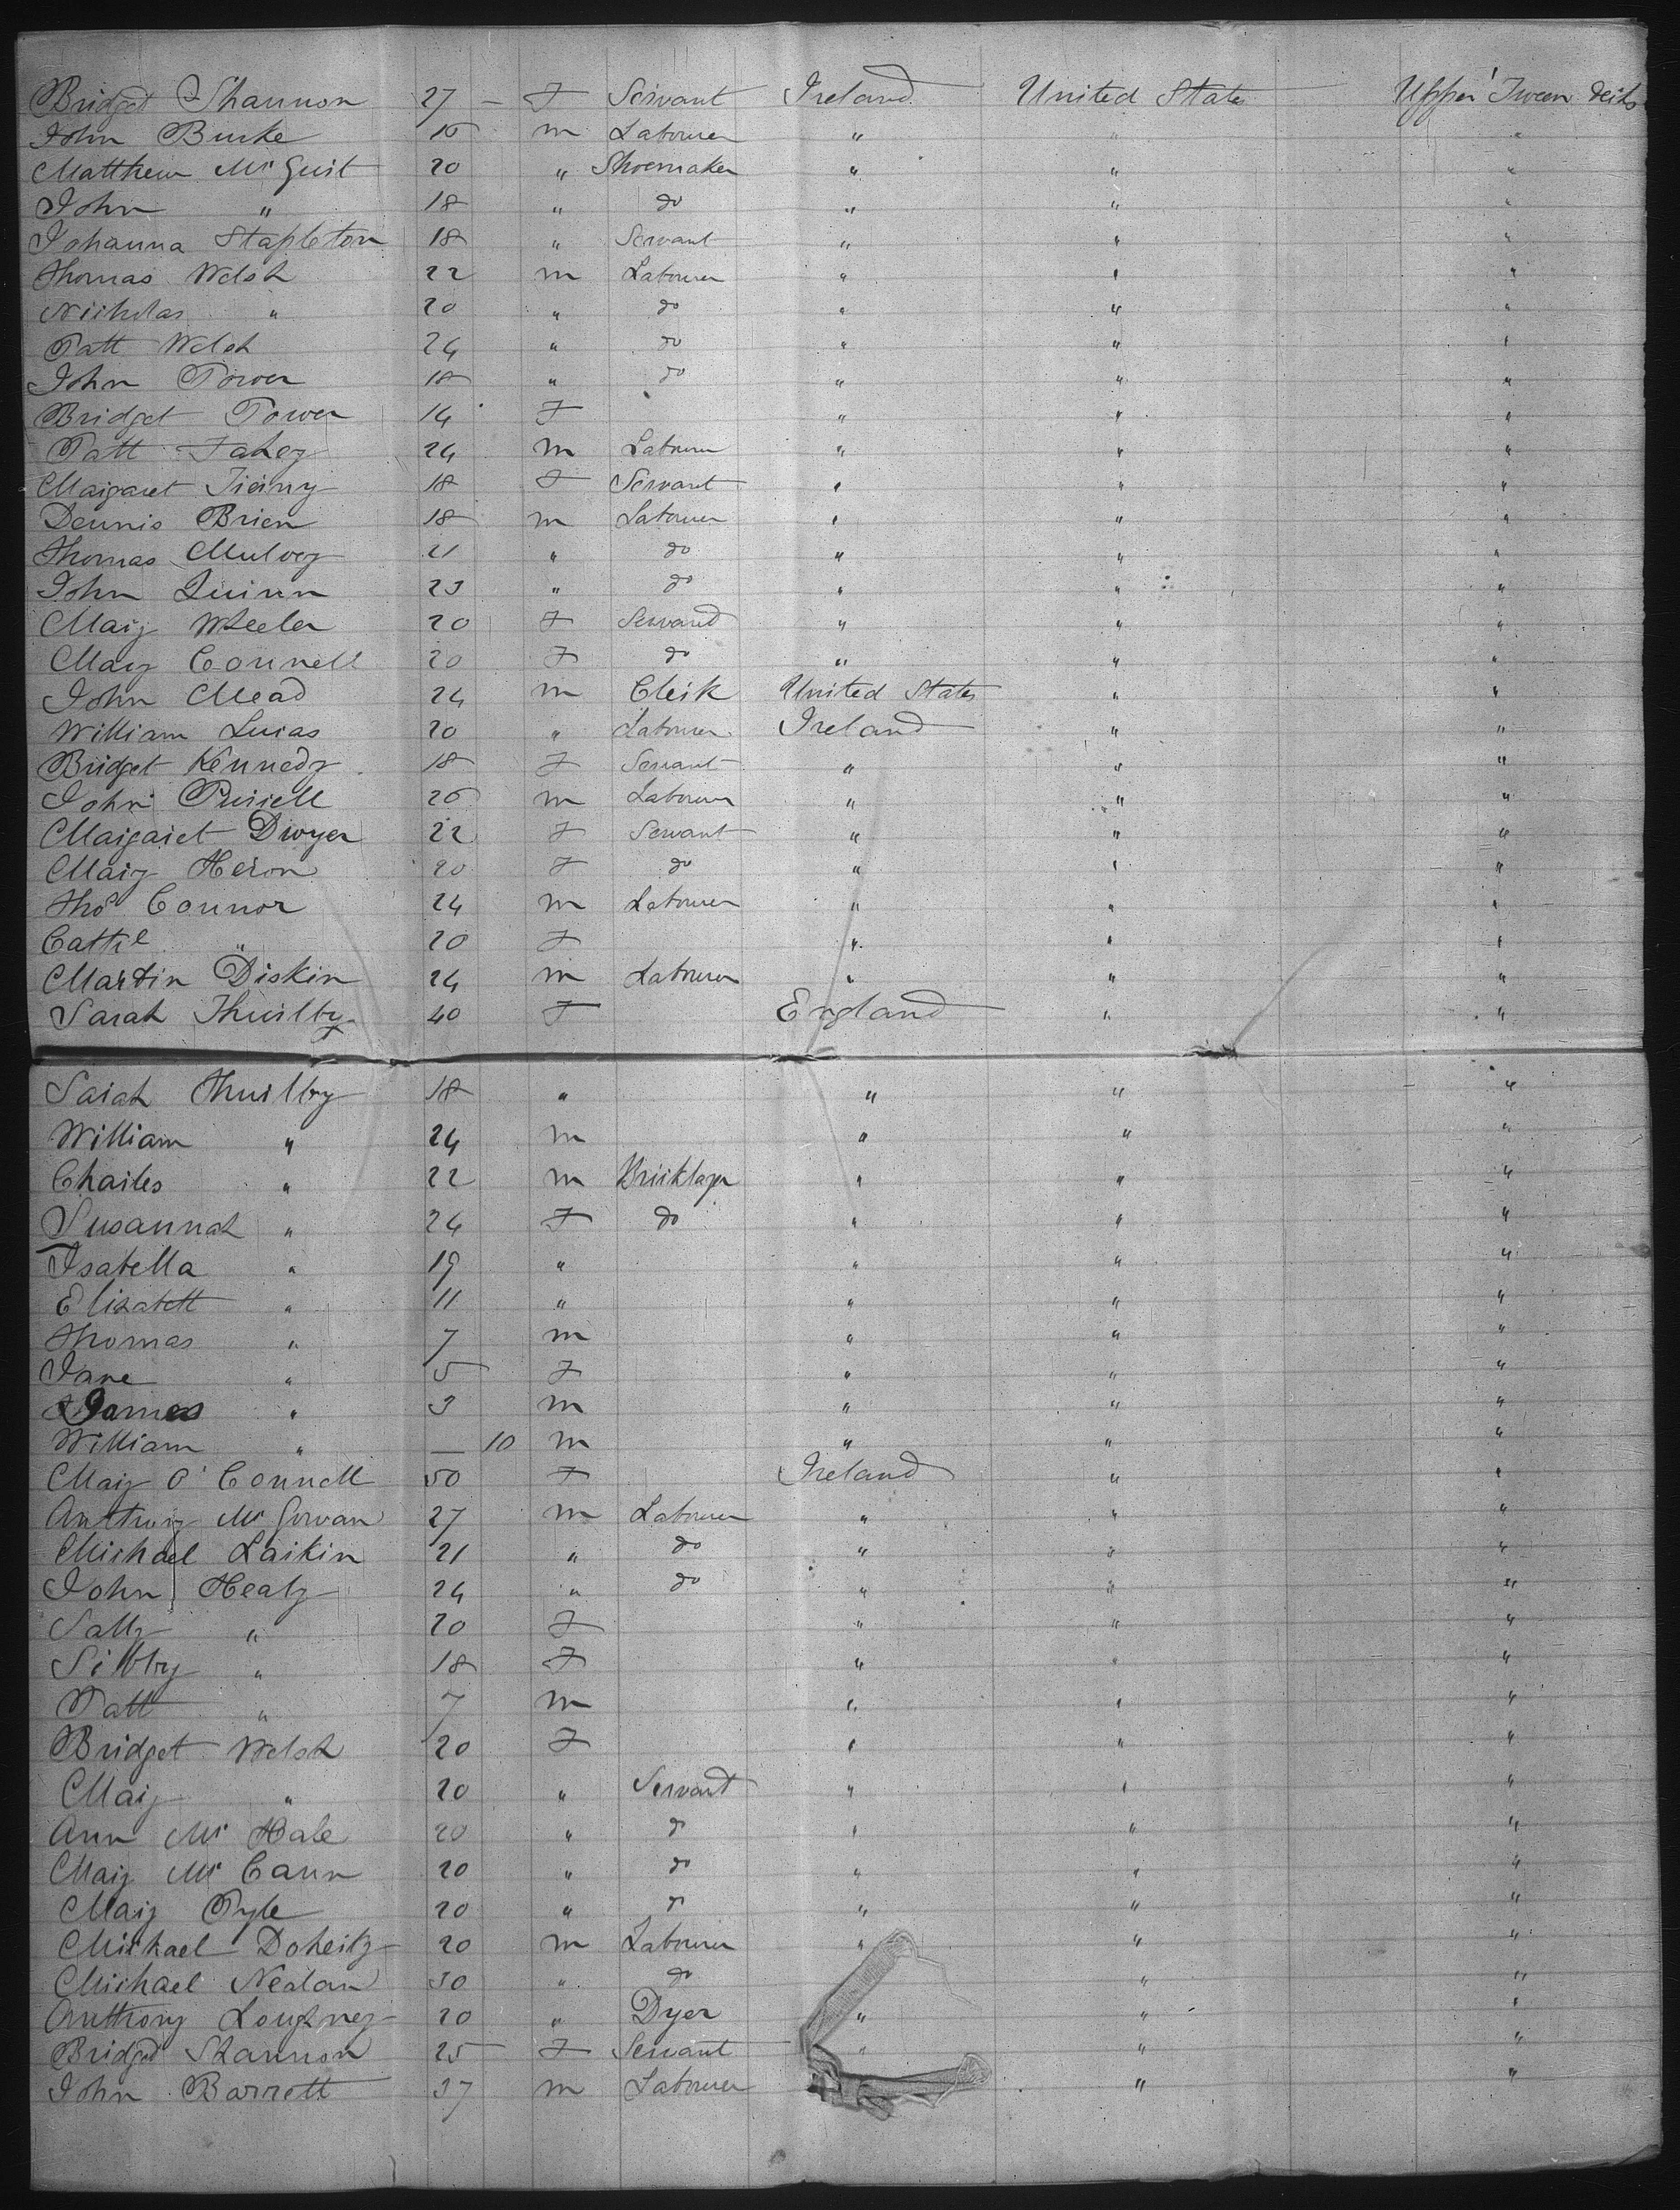 Bridget Shannon 27 — F Servant Ireland United States Upper 'Tween Decks
John Burke 16 m Labourer " " "
Matthew Mc 20 " Shoemaker " " "
John " 18 " do " " "
Johanna Stapleton 18 " Servant " " "
Thomas Welsh 22 m Labourer " " "
Nicholas " 20 " do " " "
Patt Welsh 24 " do " " "
John Power 18 " do " " "
Bridget Power 14 F " " "
Patt Fahey 24 m Labourer " " "
Margaret Tierny 18 F Servant " " "
Dennis Brien 18 m Labourer " " "
Thomas Mulvey 21 " do " " "
John Quinn 23 " do " " "
Mary Wheeler 20 F Servant " " "
Mary Connell 20 F do " " "
John Mead 24 m Clerk United States " "
William Lucas 20 " Labourer Ireland " "
Bridget Kennedy 18 F Servant " " "
John Pursell 26 m Labourer " " "
Margaret Dwyer 22 F Servant " " "
Mary Heron 20 F do " " "
Thos Connor 24 m Labourer " " "
Cathe " 20 F " " "
Martin Diskin 24 m Labourer " " "
Sarah Thirlby 40 F England " "
Sarah Thirlby 18 " " " "
William " 24 m " " "
Charles " 22 m Bricklayer " " "
Susannah " 24 F do " " "
Isabella " 19 " " " "
Elizabeth " 11 " " " "
Thomas " 7 m " " "
Jane " 5 F " " "
James " 3 m " " "
William " — 10 m " " "
Mary O'Connell 50 F Ireland " "
Anthony Mc Gowan 27 m Labourer " " "
Michael Larkin 21 " do " " "
John Healy 24 " do " " "
Sally " 20 F " " "
Sibby " 18 F " " "
Patt " 7 m " " "
Bridget Welsh 20 F " " "
Mary " 20 " Servant " " "
Ann Mc Hale 20 " do " " "
Mary Mc Cann 20 " do " " "
Mary Pyle 20 " do " " "
Michael Doherty 20 m Labourer " " "
Michael Nealan 30 " do " "
Anthony Loughney 20 " Dyer " " "
Bridget Shannon 25 F Servant " " "
John Barrett 37 m Labourer " "